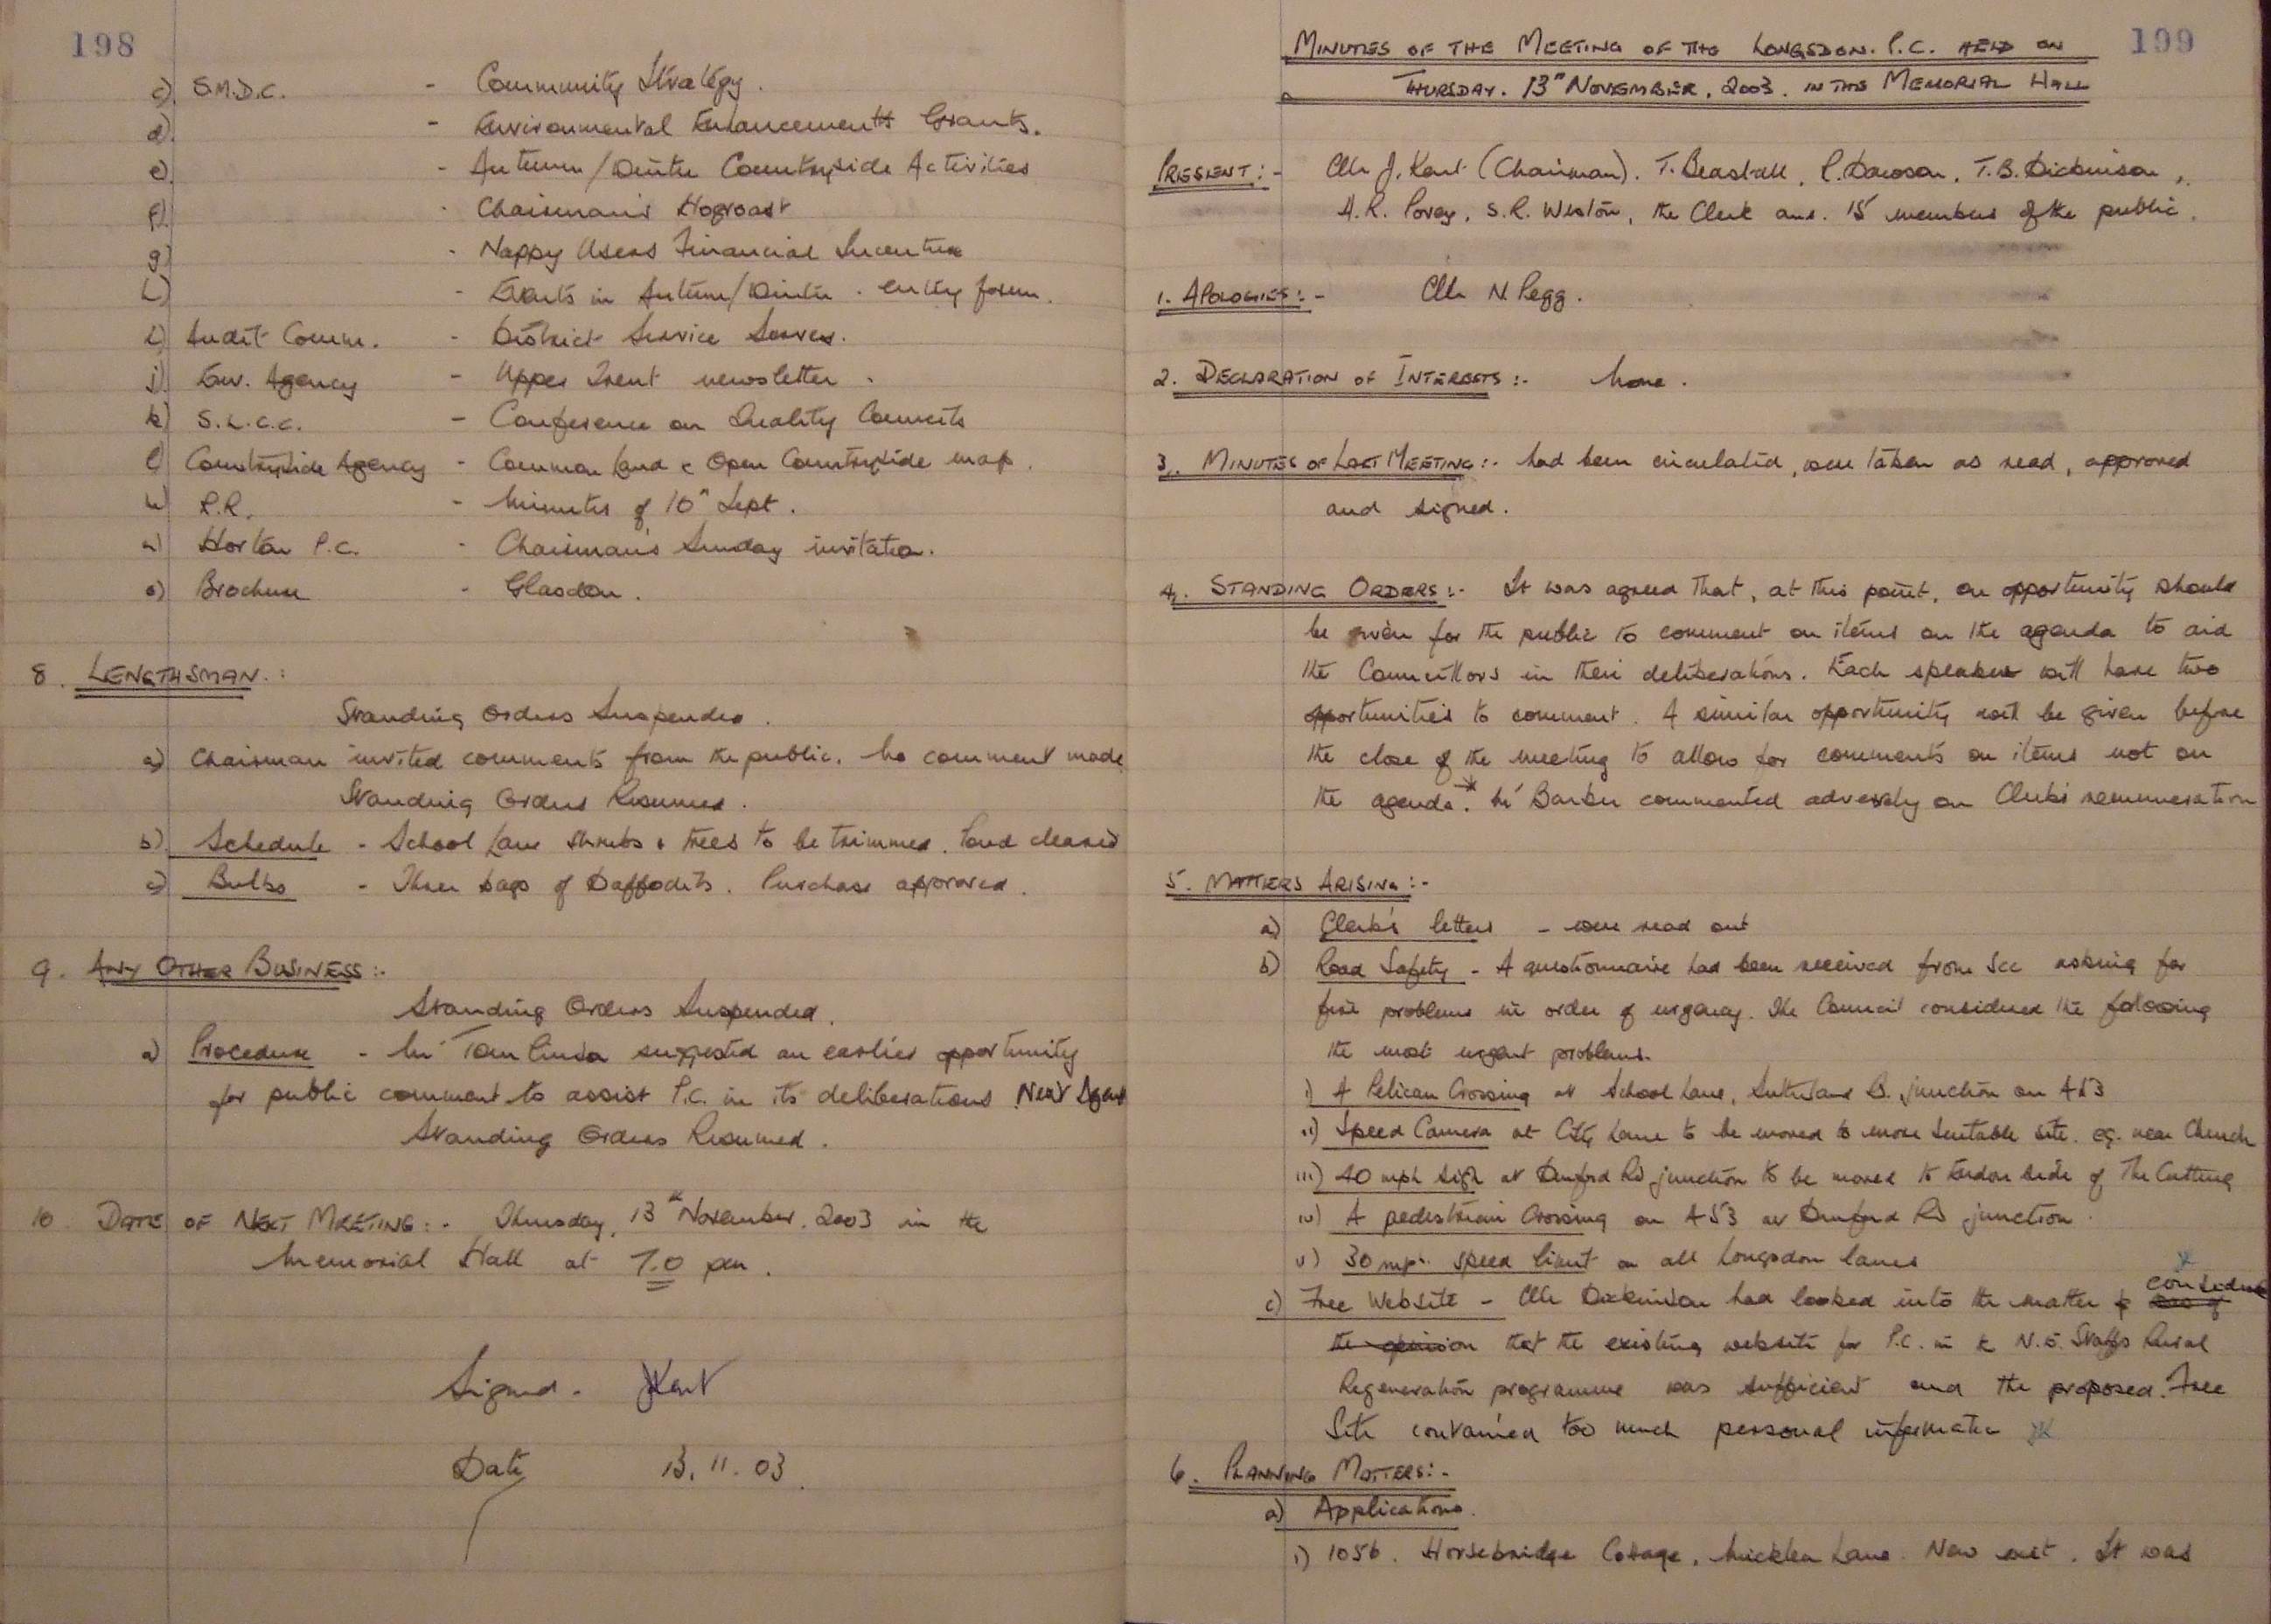 198
c) S.M.D.C. - Community Strategy.
d) - Environmental Enhancements Grants.
e) - Autumn/Winter Countryside Activities
f) - Chairman's Hogroast
g) - Nappy Users Financial Incentive
h) - Events in Autumn/Winter. entry form.
i) Audit Comm. - District Service Survey.
j) Env. Agency - Upper Trent newsletter.
k) S.L.C.C. - Conference on Quality Councils
l) Countryside Agency - Common Land & Open Countryside map.
m) R.R. - Minutes of 10th Sept.
n) Horton P.C. - Chairman's Sunday invitation.
o) Brochure - Glasdon.
8. LENGTHSMAN:
Standing Orders Suspended.
a) Chairman invited comments from the public. No comment made
Standing Orders Resumed.
b) Schedule - School Lane shrubs & trees to be trimmed. cleared
c) Bulbs - Three bags of Daffodils. Purchase approved.
9. ANY OTHER BUSINESS:-
Standing Orders Suspended.
a) Procedure - Mr Tom suggested an earlier opportunity
for public comment to assist P.C. in its deliberations. Next Agenda
Standing Orders Resumed.
10. DATE OF NEXT MEETING:- Thursday, 13th November, 2003 in the
Memorial Hall at 7.0 pm.
Signed - JKent
Date 13.11.03.
199
MINUTES OF THE MEETING OF THE LONGSDON. P.C. HELD ON
THURSDAY. 13th NOVEMBER, 2003. IN THE MEMORIAL HALL
PRESENT:- Cllr J. Kent (Chairman). T. Beastall, P. Dawson, T.B. Dickinson,
A.R. Povey, S.R. Weston, the Clerk and 15 members of the public.
1. APOLOGIES:- Cllr N. Pegg.
2. DECLARATION OF INTERESTS:- None.
3. MINUTES OF LAST MEETING:- had been circulated, were taken as read, approved
and signed.
4. STANDING ORDERS:- It was agreed that, at this point, an opportunity should
be given for the public to comment on items on the agenda to aid
the Councillors in their deliberations. Each speaker will have two
opportunities to comment. A similar opportunity will be given before
the close of the meeting to allow for comments on items not on
the agenda.* Mr Barker commented adversely on Clerk's remuneration
5. MATTERS ARISING:-
a) Clerk's letters - were read out
b) Road Safety - A questionnaire had been received from SCC asking for
five problems in order of urgency. The Council considered the following
the most urgent problems.
i) A Pelican Crossing at School Lane, Sutherland Rd. junction on A53
ii) Speed Camera at City Lane to be moved to more suitable site. eg. near Church
iii) 40 mph sign at Dunford Rd junction to be moved to Endon side of The Cutting
iv) A pedestrian Crossing on A53 at Dunford Rd junction.
v) 30 mph. speed limit on all Longsdon lanes
c) Free Website - Cllr Dickinson had looked into the matter & was of considered
the opinion that the existing website for P.C. in N.E. Staffs Rural
Regeneration programme was sufficient and the proposed Free
Site contained too much personal information JK
6. PLANNING MATTERS:-
a) Applications.
i) 1056. Horsebridge Cottage, Micklea Lane. New. It was